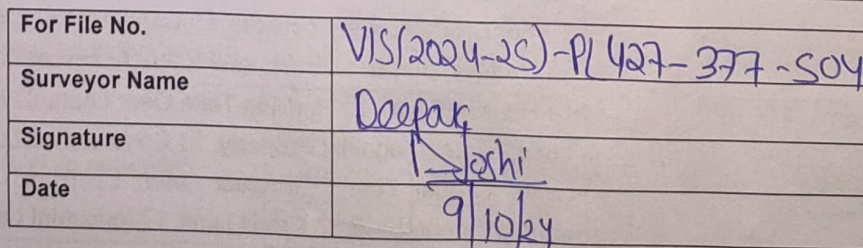 For File No. VIS(2024-25)-PL427-377-504
Surveyor Name Deepak
Signature Joshi
Date 9/10/24